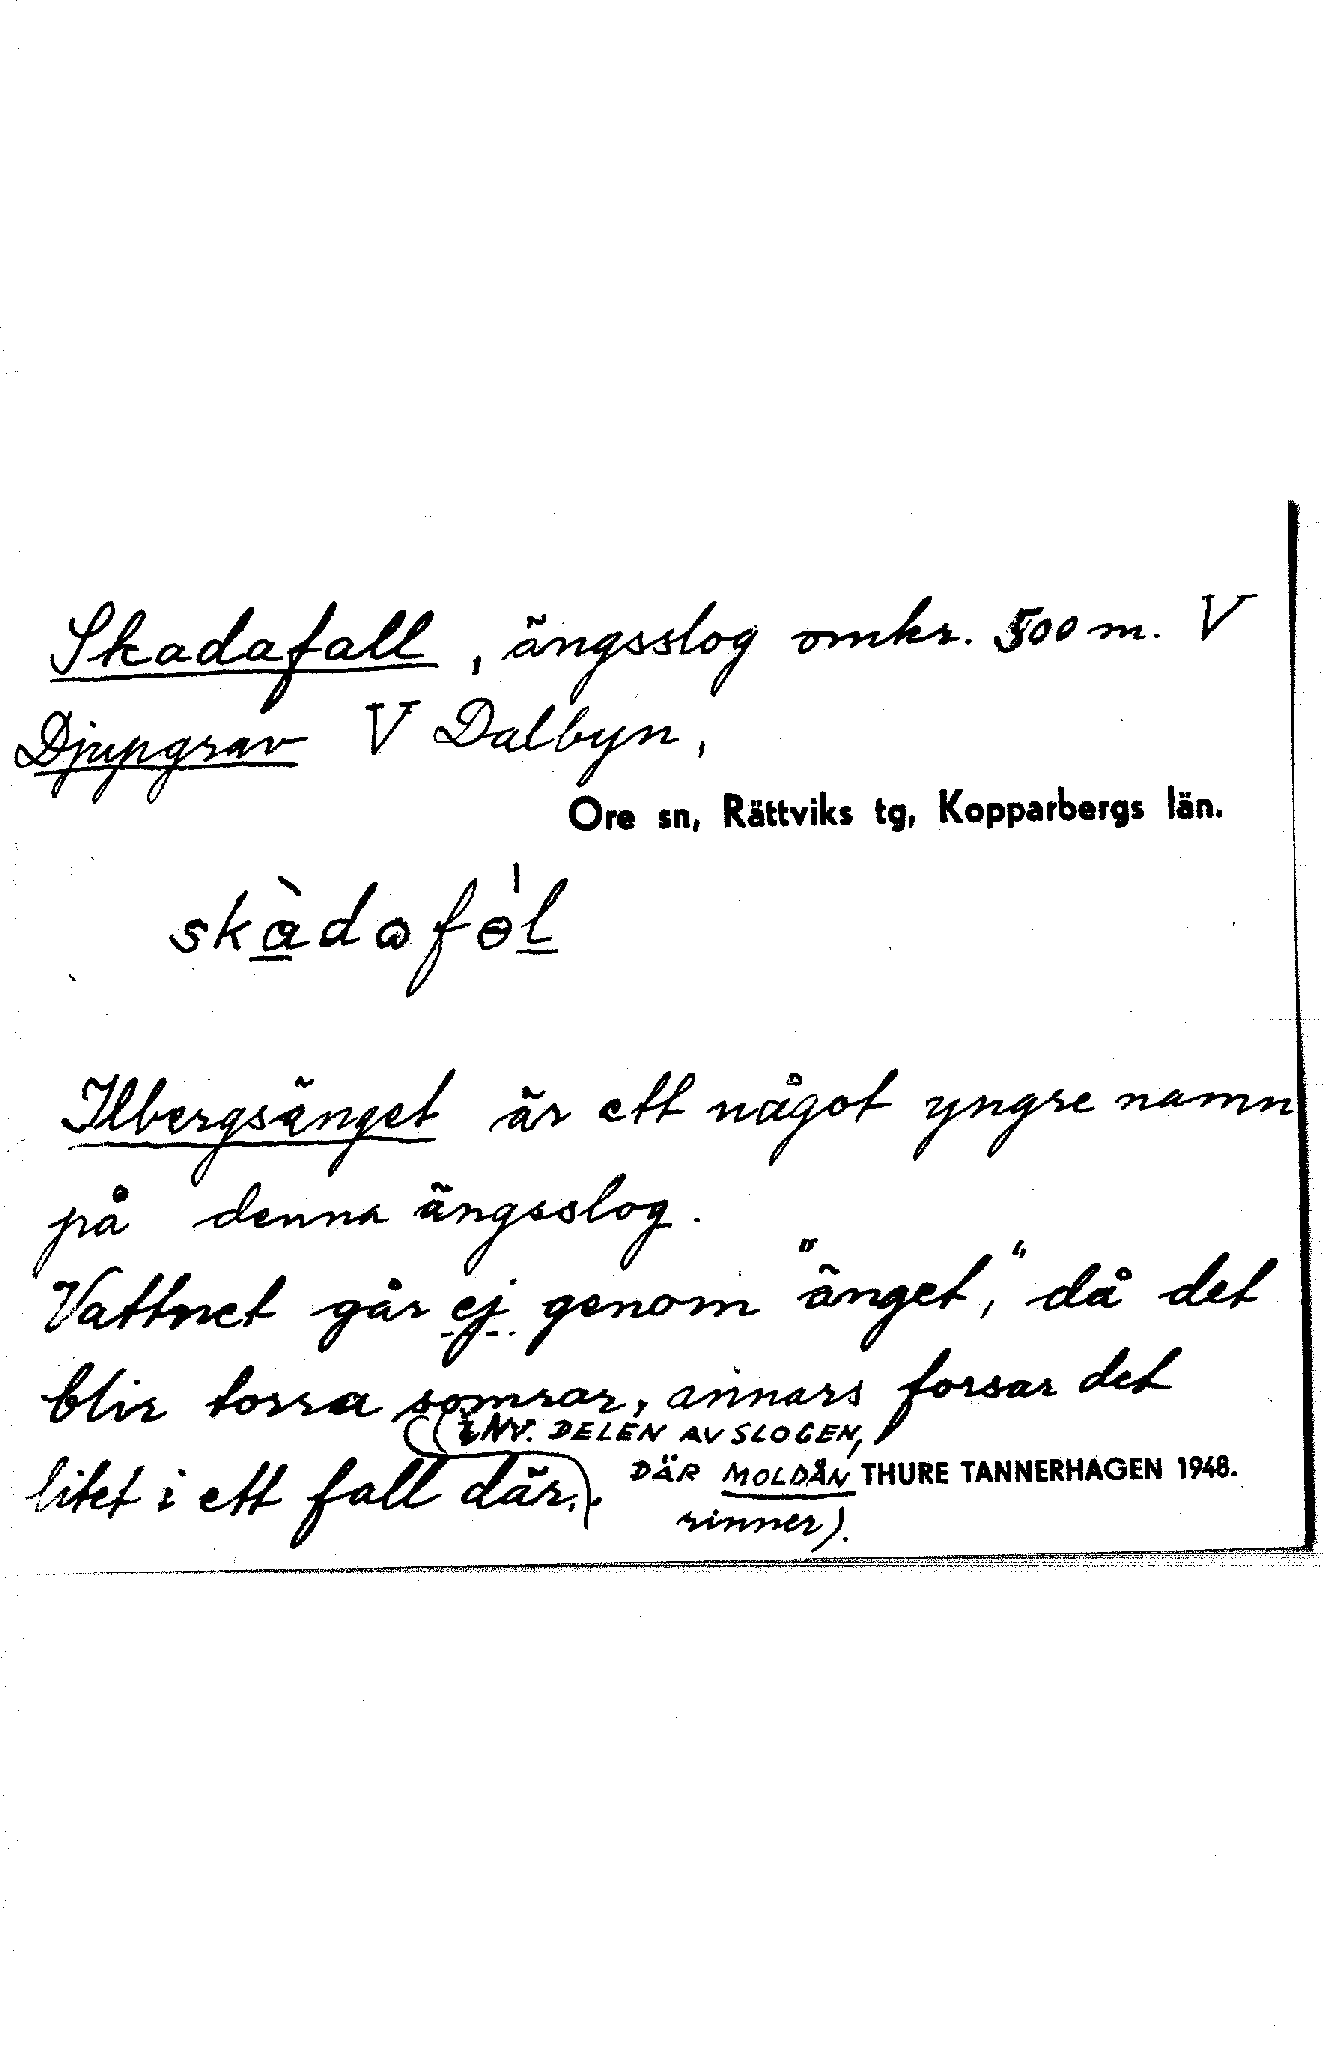 Skadafall, ängsslog omkr. 500 m. V
Djupgrav V Dalbyn,
Ore sn, Rättviks tg, Kopparbergs län.
Ilbergsänget är ett något yngre namn
på denna ängsslog.
Vattnet går ej genom "änget", då det
blir torra somrar, annars forsar det
(i NV. DELEN AV SLOGEN,
litet i ett fall där.
DÄR MOLDÅN THURE TANNERHAGEN 1948.
rinner).